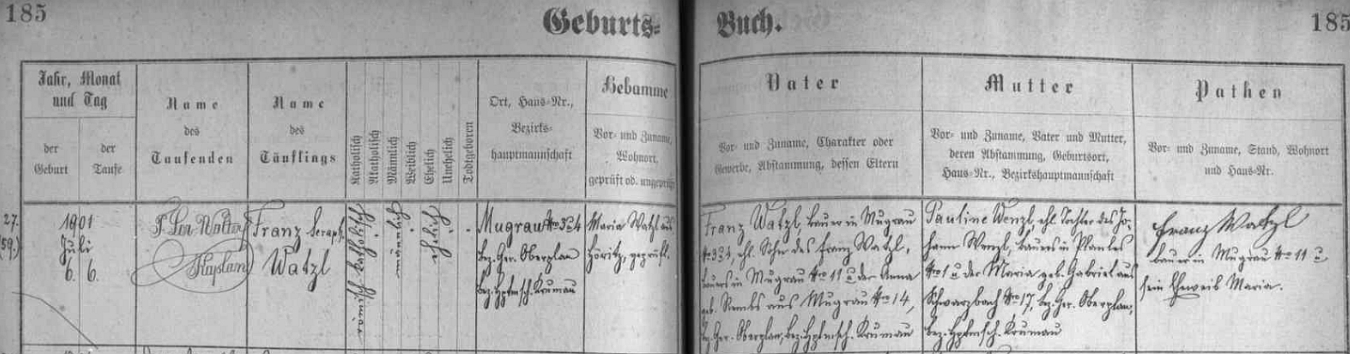 185
Geburts-
Buch.
185
Jahr, Monat
und Tag
der
Geburt
der
Taufe
Name
des
Taufenden
Name
des
Täuflings
Katholisch
Akatholisch
Männlich
Weiblich
Ehelich
Unehelich
Todtgeboren
Ort, Haus-Nr.,
Bezirks-
hauptmannschaft
Hebamme
Vor- und Zuname,
Wohnort,
geprüft od. ungeprüft
Vater
Vor- und Zuname, Charakter oder
Gewerbe, Abstammung, dessen Eltern
Mutter
Vor- und Zuname, Vater und Mutter,
deren Abstammung, Geburtsort,
Haus-Nr., Bezirkshauptmannschaft
Pathen
Vor- und Zuname, Stand, Wohnort
und Haus-Nr.
27.
(59.)
1901
Juli
6. 6.
Kaplan
Franz Seraph.
Watzl
Mugrau No
bez. Ger. Oberplan
bez. Hptmsch. Krumau
Maria Watzl aus
Höritz, geprüft.
Franz Watzl, Bauer in Mugrau
ehl. Sohn des Franz Watzl,
Bauers in Mugrau No 11 u. der Anna
geb. aus Mugrau No 14,
bez. Ger. Oberplan, bez. Hptmsch. Krumau
Pauline Wenzl, ehe Tochter des Jo-
hann Wenzl, Bauers in Planles
No 1 u. der Maria geb. Gabriel aus
Schwarzbach No 17, bez. Ger. Oberplan,
bez. Hptmsch. Krumau
Franz Watzl
Bauer in Mugrau No 11 u.
sein Eheweib Maria.